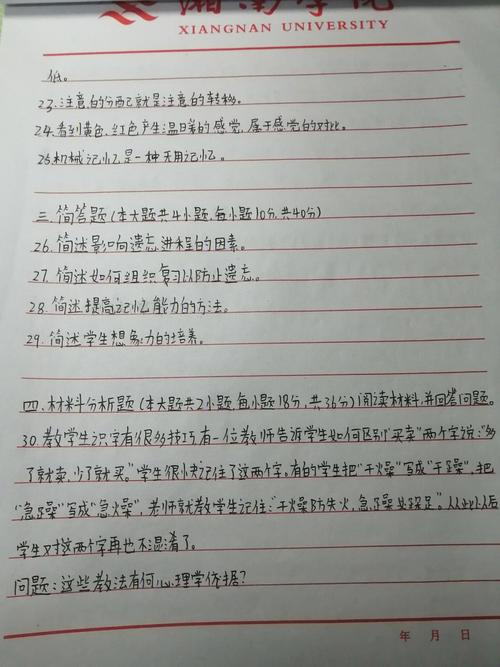 湘南学院
XIANGNAN UNIVERSITY
低。
23.注意的分配就是注意的转移。
24.看到黄色、红色产生温暖的感觉,属于感觉的对比。
25.机械记忆是一种无用记忆。
三.简答题(本大题共4小题,每小题10分,共40分)
26.简述影响遗忘进程的因素。
27.简述如何组织复习以防止遗忘。
28.简述提高记忆能力的方法。
29.简述学生想象力的培养。
四.材料分析题(本大题共2小题,每小题18分,共36分)阅读材料,并回答问题。
30.教学生识字有很多技巧,有一位教师告诉学生如何区别“买卖”两个字说:“多
了就卖,少了就买。”学生很快记住了这两个字。有的学生把“干燥”写成“干躁”,把
“急躁”写成“急燥”,老师就教学生记住:“干燥防失火,急躁必跺足。”从此以后
学生对这两个字再也不混淆了。
问题:这些教法有何心理学依据?
年 月 日